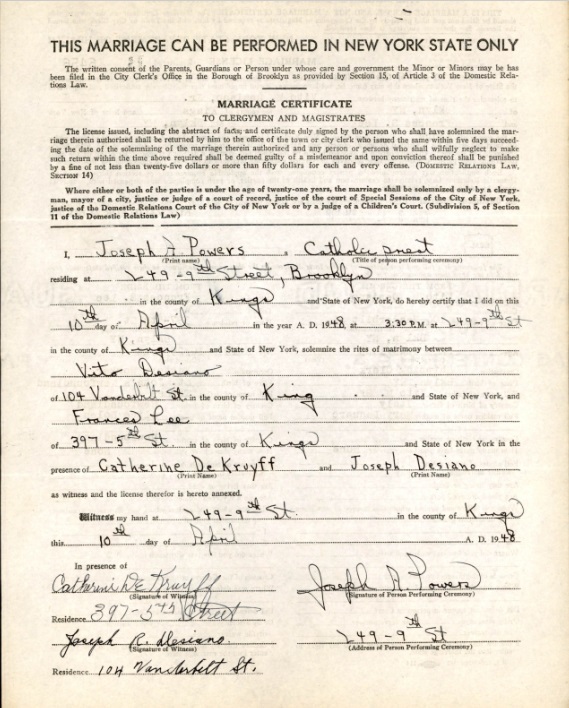 THIS MARRIAGE CAN BE PERFORMED IN NEW YORK STATE ONLY
The written consent of the Parents, Guardians or Person under whose care and government the Minor or Minors may be has
been filed in the City Clerk's Office in the Borough of Brooklyn as provided by Section 15, of Article 3 of the Domestic Rela-
tions Law.
MARRIAGE CERTIFICATE
TO CLERGYMEN AND MAGISTRATES
The license issued, including the abstract of facts; and certificate duly signed by the person who shall have solemnized the mar-
riage therein authorized shall be returned by him to the office of the town or city clerk who issued the same within five days succeed-
ing the date of the solemnizing of the marriage therein authorized and any person or persons who shall wilfully neglect to make
such return within the time above required shall be deemed guilty of a misdemeanor and upon conviction thereof shall be punished
by a fine of not less than twenty-five dollars or more than fifty dollars for each and every offense. (DOMESTIC RELATIONS LAW,
SECTION 14)
Where either or both of the parties is under the age of twenty-one years, the marriage shall be solemnized only by a clergy-
man, mayor of a city, justice or judge of a court of record, justice of the court of Special Sessions of the City of New York,
justice of the Domestic Relations Court of the City of New York or by a judge of a Children's Court. (Subdivision 5, of Section
11 of the Domestic Relations Law)
I, Joseph A Powers a Catholic priest
(Print name) (Title of person performing ceremony)
residing at 249-9th Street, Brooklyn
in the county of Kings and State of New York, do hereby certify that I did on this
10th day of April in the year A. D. 1948 at 3:30 P.M. at 249-9th St
in the county of Kings and State of New York, solemnize the rites of matrimony between
Vito Desiano
of 104 Vanderbilt St. in the county of King and State of New York, and
Frances Lee
of 397-5th St. in the county of Kings and State of New York in the
presence of Catherine De Kruyff and Joseph Desiano
(Print Name) (Print Name)
as witness and the license therefor is hereto annexed.
Witness my hand at 249-9th St. in the county of Kings
this 10th day of April A. D. 1948
In presence of
Catherine De Kruyff Joseph A Powers
(Signature of Witness) (Signature of Person Performing Ceremony)
Residence 397-5th Street
Joseph R. Desiano. 249-9th St
(Signature of Witness) (Address of Person Performing Ceremony)
Residence 104 Vanderbilt St.